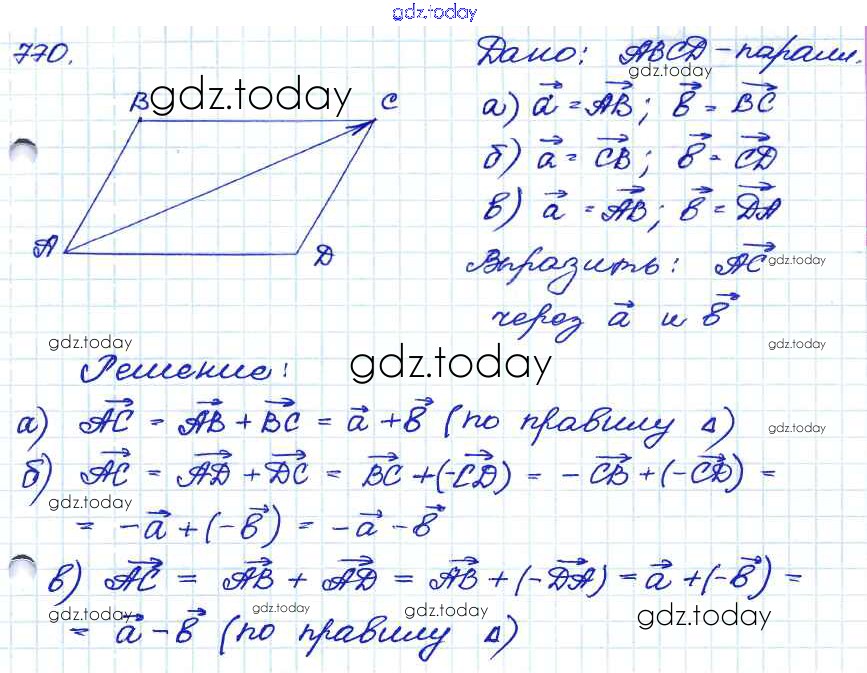 gdz.today
770.
Дано: ABCD - парал.
B gdz.today C
а) a⃗ = AB⃗; b⃗ = BC⃗
б) a⃗ = CB⃗; b⃗ = CD⃗
в) a⃗ = AB⃗; b⃗ = DA⃗
A D
Выразить: AC⃗ gdz.today
через a⃗ и b⃗
gdz.today gdz.today
Решение: gdz.today
а) AC⃗ = AB⃗ + BC⃗ = a⃗ + b⃗ (по правилу Δ) gdz.today
б) AC⃗ = AD⃗ + DC⃗ = BC⃗ + (-CD⃗) = - CB⃗ + (-CD⃗) =
gdz.today gdz.today
= -a⃗ + (-b⃗) = -a⃗ - b⃗
в) AC⃗ = AB⃗ + AD⃗ = AB⃗ + (-DA⃗) = a⃗ + (-b⃗) =
gdz.today gdz.today gdz.today gdz.today
= a⃗ - b⃗ (по правилу Δ)